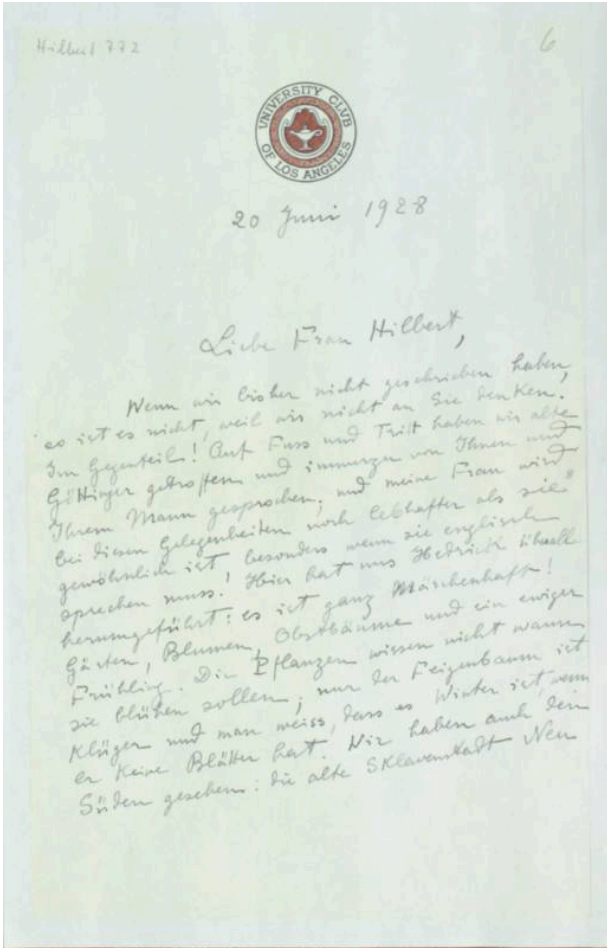 Hilbert 772
6
UNIVERSITY CLUB
OF LOS ANGELES
20 Juni 1928
Liebe Frau Hilbert,
Wenn wir bisher nicht geschrieben haben,
so ist es nicht, weil wir nicht an Sie denken.
Im Gegenteil! Auf Fuss und Tritt haben wir alte
Göttinger getroffen und immerzu von Ihnen und
Ihrem Mann gesprochen; und meine Frau wird
bei diesen Gelegenheiten noch lebhafter als sie
gewöhnlich ist, besonders wenn sie englisch
sprechen muss! Hier hat uns Hedrick überall
herumgeführt: es ist ganz Märchenhaft!
Gärten, Blumen, Obstbäume und ein ewiger
Frühling. Die Pflanzen wissen nicht wann
sie blühen sollen; nur der Feigenbaum ist
klüger und man weiss, dass es Winter ist, wenn
er keine Blätter hat. Wir haben auch den
Süden gesehen: die alte Sklavenstadt New